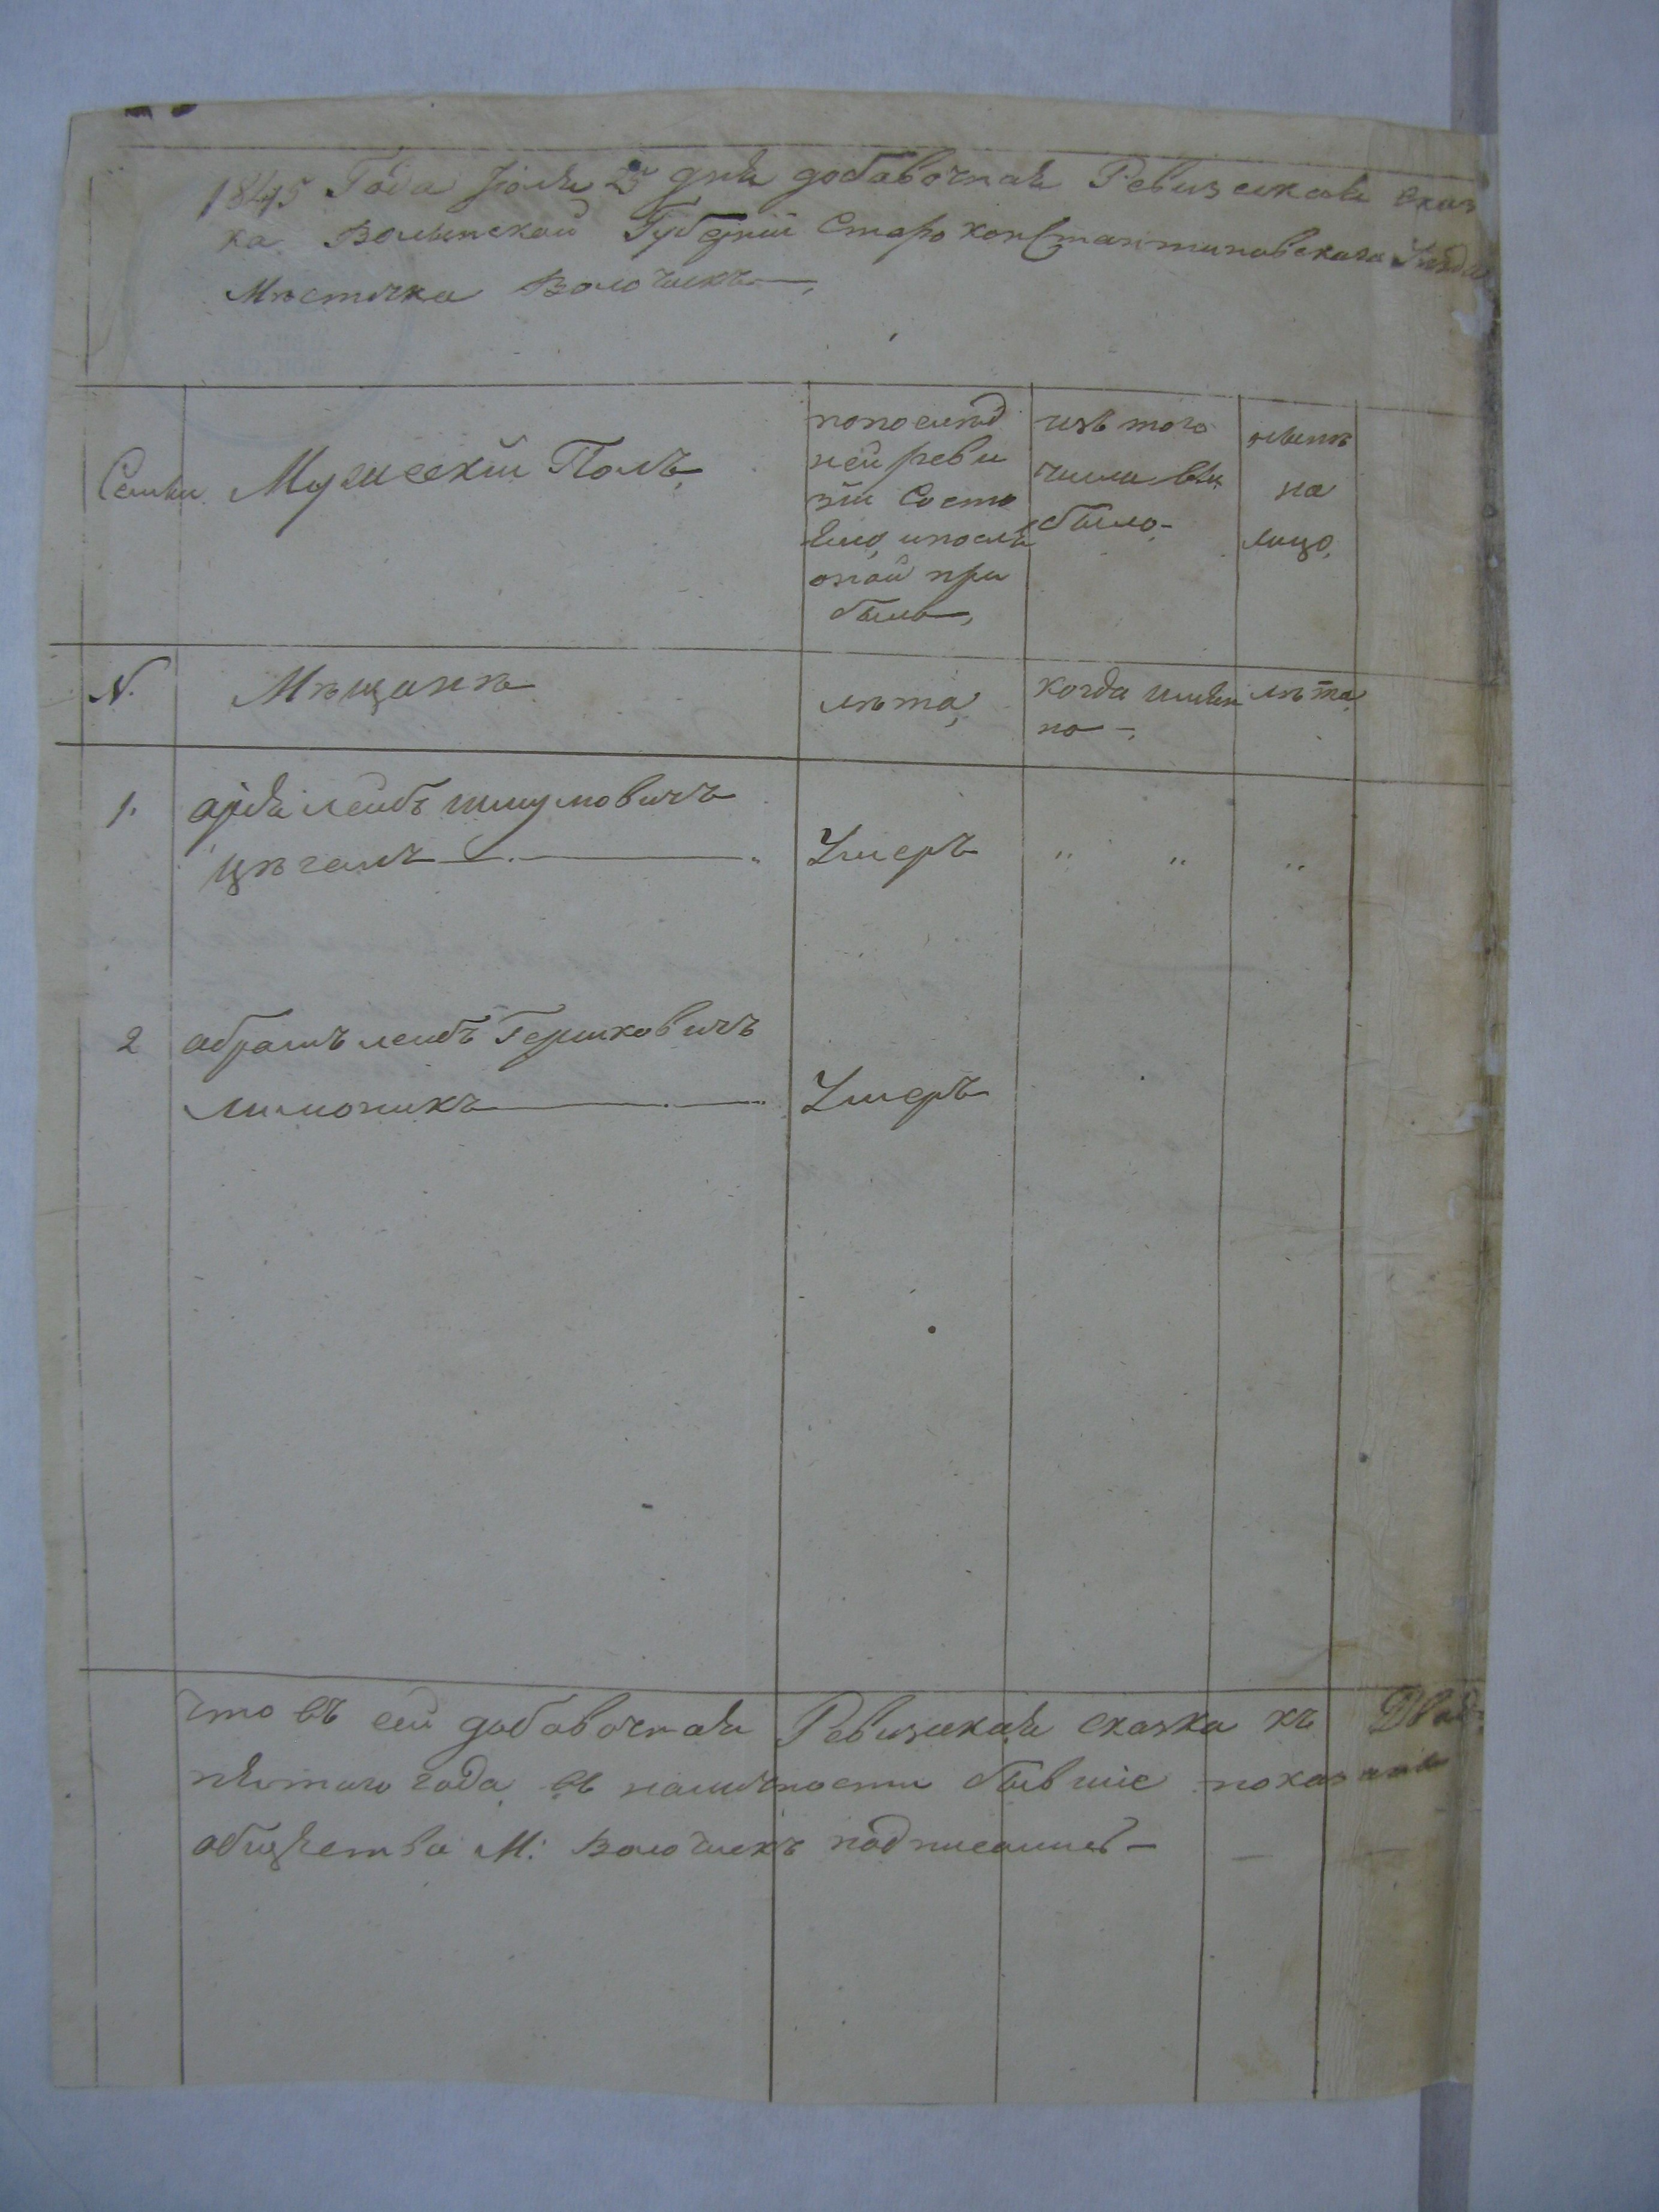 1845 Года Іюля 25 дня добавочная Ревизская сказ
ка Волынской Губерніи Старо константиновскаго Уѣзда
Мѣстечка Волочискъ
Семьи
Мужескій Полъ
попослѣд
ней реви
зіи Состо
яло, ипослѣ
оной при
было,
изъ того
числа вы
было
нынѣ
на
лицо.
N.
Мѣщанъ
лѣта,
когда имян
но
лѣта
1.
лейбъ шмуловичъ
цѣгалъ
Умеръ
2
абрамъ лейбъ Гершковичъ
лимоникъ
Умеръ
что въ сей добавочная Ревизская сказка къ
года въ наличности бывшіе
общества М: Волочискъ